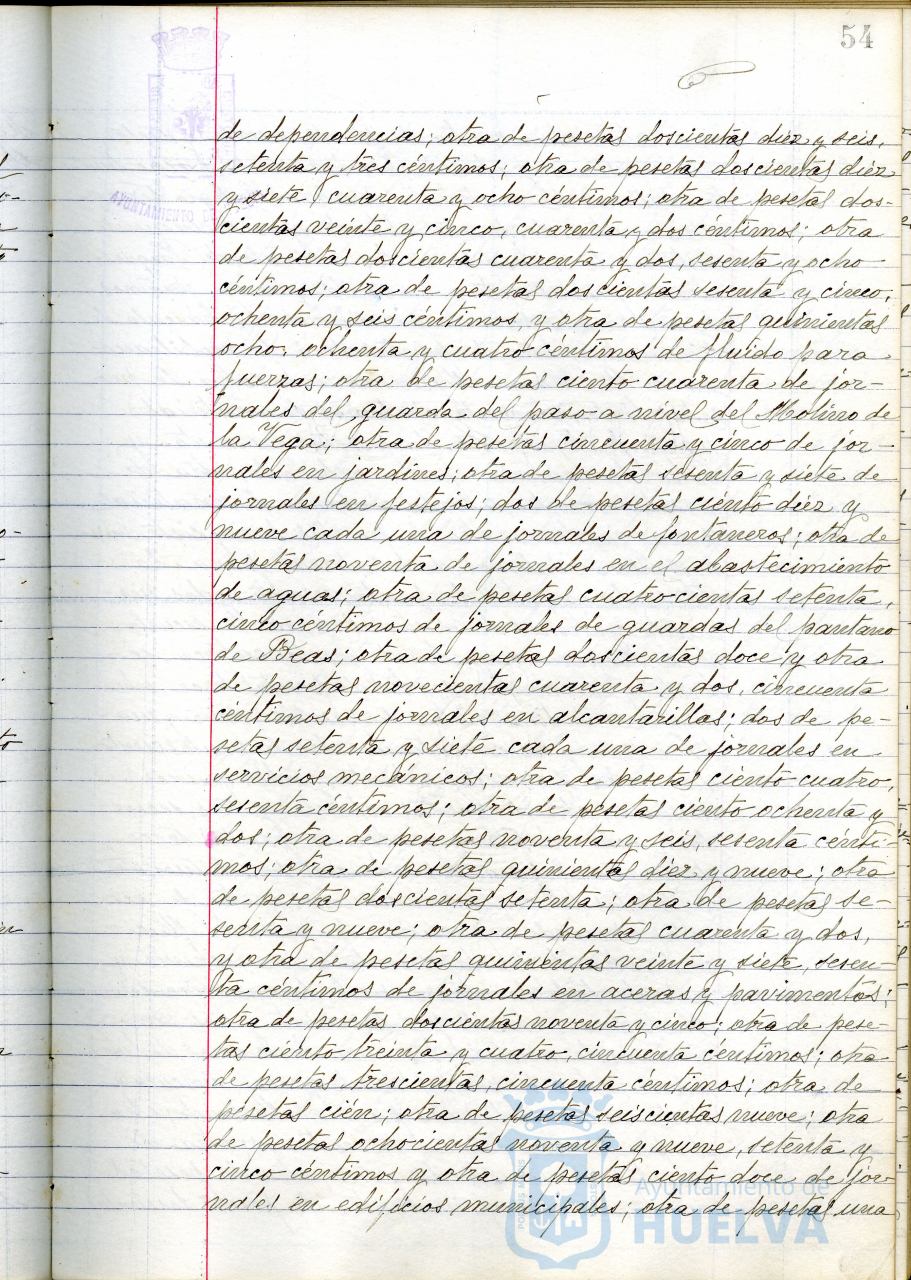 54
de dependencias; otra de pesetas doscientas diez y seis,
setenta y tres céntimos; otra de pesetas doscientas diez
y siete, cuarenta y ocho céntimos; otra de pesetas dos-
cientas veinte y cinco, cuarenta y dos céntimos; otra
de pesetas doscientas cuarenta y dos, sesenta y ocho
céntimos; otra de pesetas doscientas sesenta y cinco,
ochenta y seis céntimos, y otra de pesetas quinientas
ocho, ochenta y cuatro céntimos de fluido para
fuerzas; otra de pesetas ciento cuarenta de jor-
nales del guarda del paso a nivel del Molino de
la Vega; otra de pesetas cincuenta y cinco de jor-
nales en jardines; otra de pesetas sesenta y siete de
jornales en festejos; dos de pesetas ciento diez y
nueve cada una de jornales de fontaneros; otra de
pesetas noventa de jornales en el abastecimiento
de aguas; otra de pesetas cuatrocientas setenta,
cinco céntimos de jornales de guardas del pantano
de Beas; otra de pesetas doscientas doce y otra
de pesetas novecientas cuarenta y dos, cincuenta
céntimos de jornales en alcantarillas; dos de pe-
setas setenta y siete cada una de jornales en
servicios mecánicos; otra de pesetas ciento cuatro,
sesenta céntimos; otra de pesetas ciento ochenta y
dos; otra de pesetas noventa y seis, sesenta cénti-
mos; otra de pesetas quinientas diez y nueve; otra
de pesetas doscientas setenta; otra de pesetas se-
senta y nueve; otra de pesetas cuarenta y dos,
y otra de pesetas quinientas veinte y siete, sesen-
ta céntimos de jornales en aceras y pavimentos;
otra de pesetas doscientas noventa y cinco; otra de pese-
tas ciento treinta y cuatro, cincuenta céntimos; otra
de pesetas trescientas, cincuenta céntimos; otra de
pesetas cién; otra de pesetas seiscientas nueve; otra
de pesetas ochocientas noventa y nueve, setenta y
cinco céntimos y otra de pesetas ciento doce de jor-
nales en edificios municipales; otra de pesetas una
AYUNTAMIENTO DE
Ayuntamiento de
HUELVA